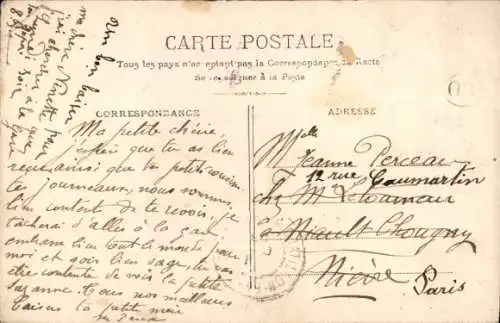 Un bon baiser
ma chère Ninette
CARTE POSTALE
Tous les pays n'acceptant pas la Correspondance au recto
se renseigner à la Poste
CORRESPONDANCE
ADRESSE
Ma petite chérie,
j'espère que tu as bien
reçu ainsi que ta petite cousine
tes journeaux, nous sommes
bien content de te revoir, je
tacherai d'aller à la gare
embrasse bien tout le monde pour
moi et sois bien sage, tu vas
être contente de voir la petite
Suzanne. de nous nos meilleurs
baisers ta petite mère
Melle
Jeanne Perceau
12 rue Caumartin
chez Mr
à Niault Chougny
Nièvre
Paris